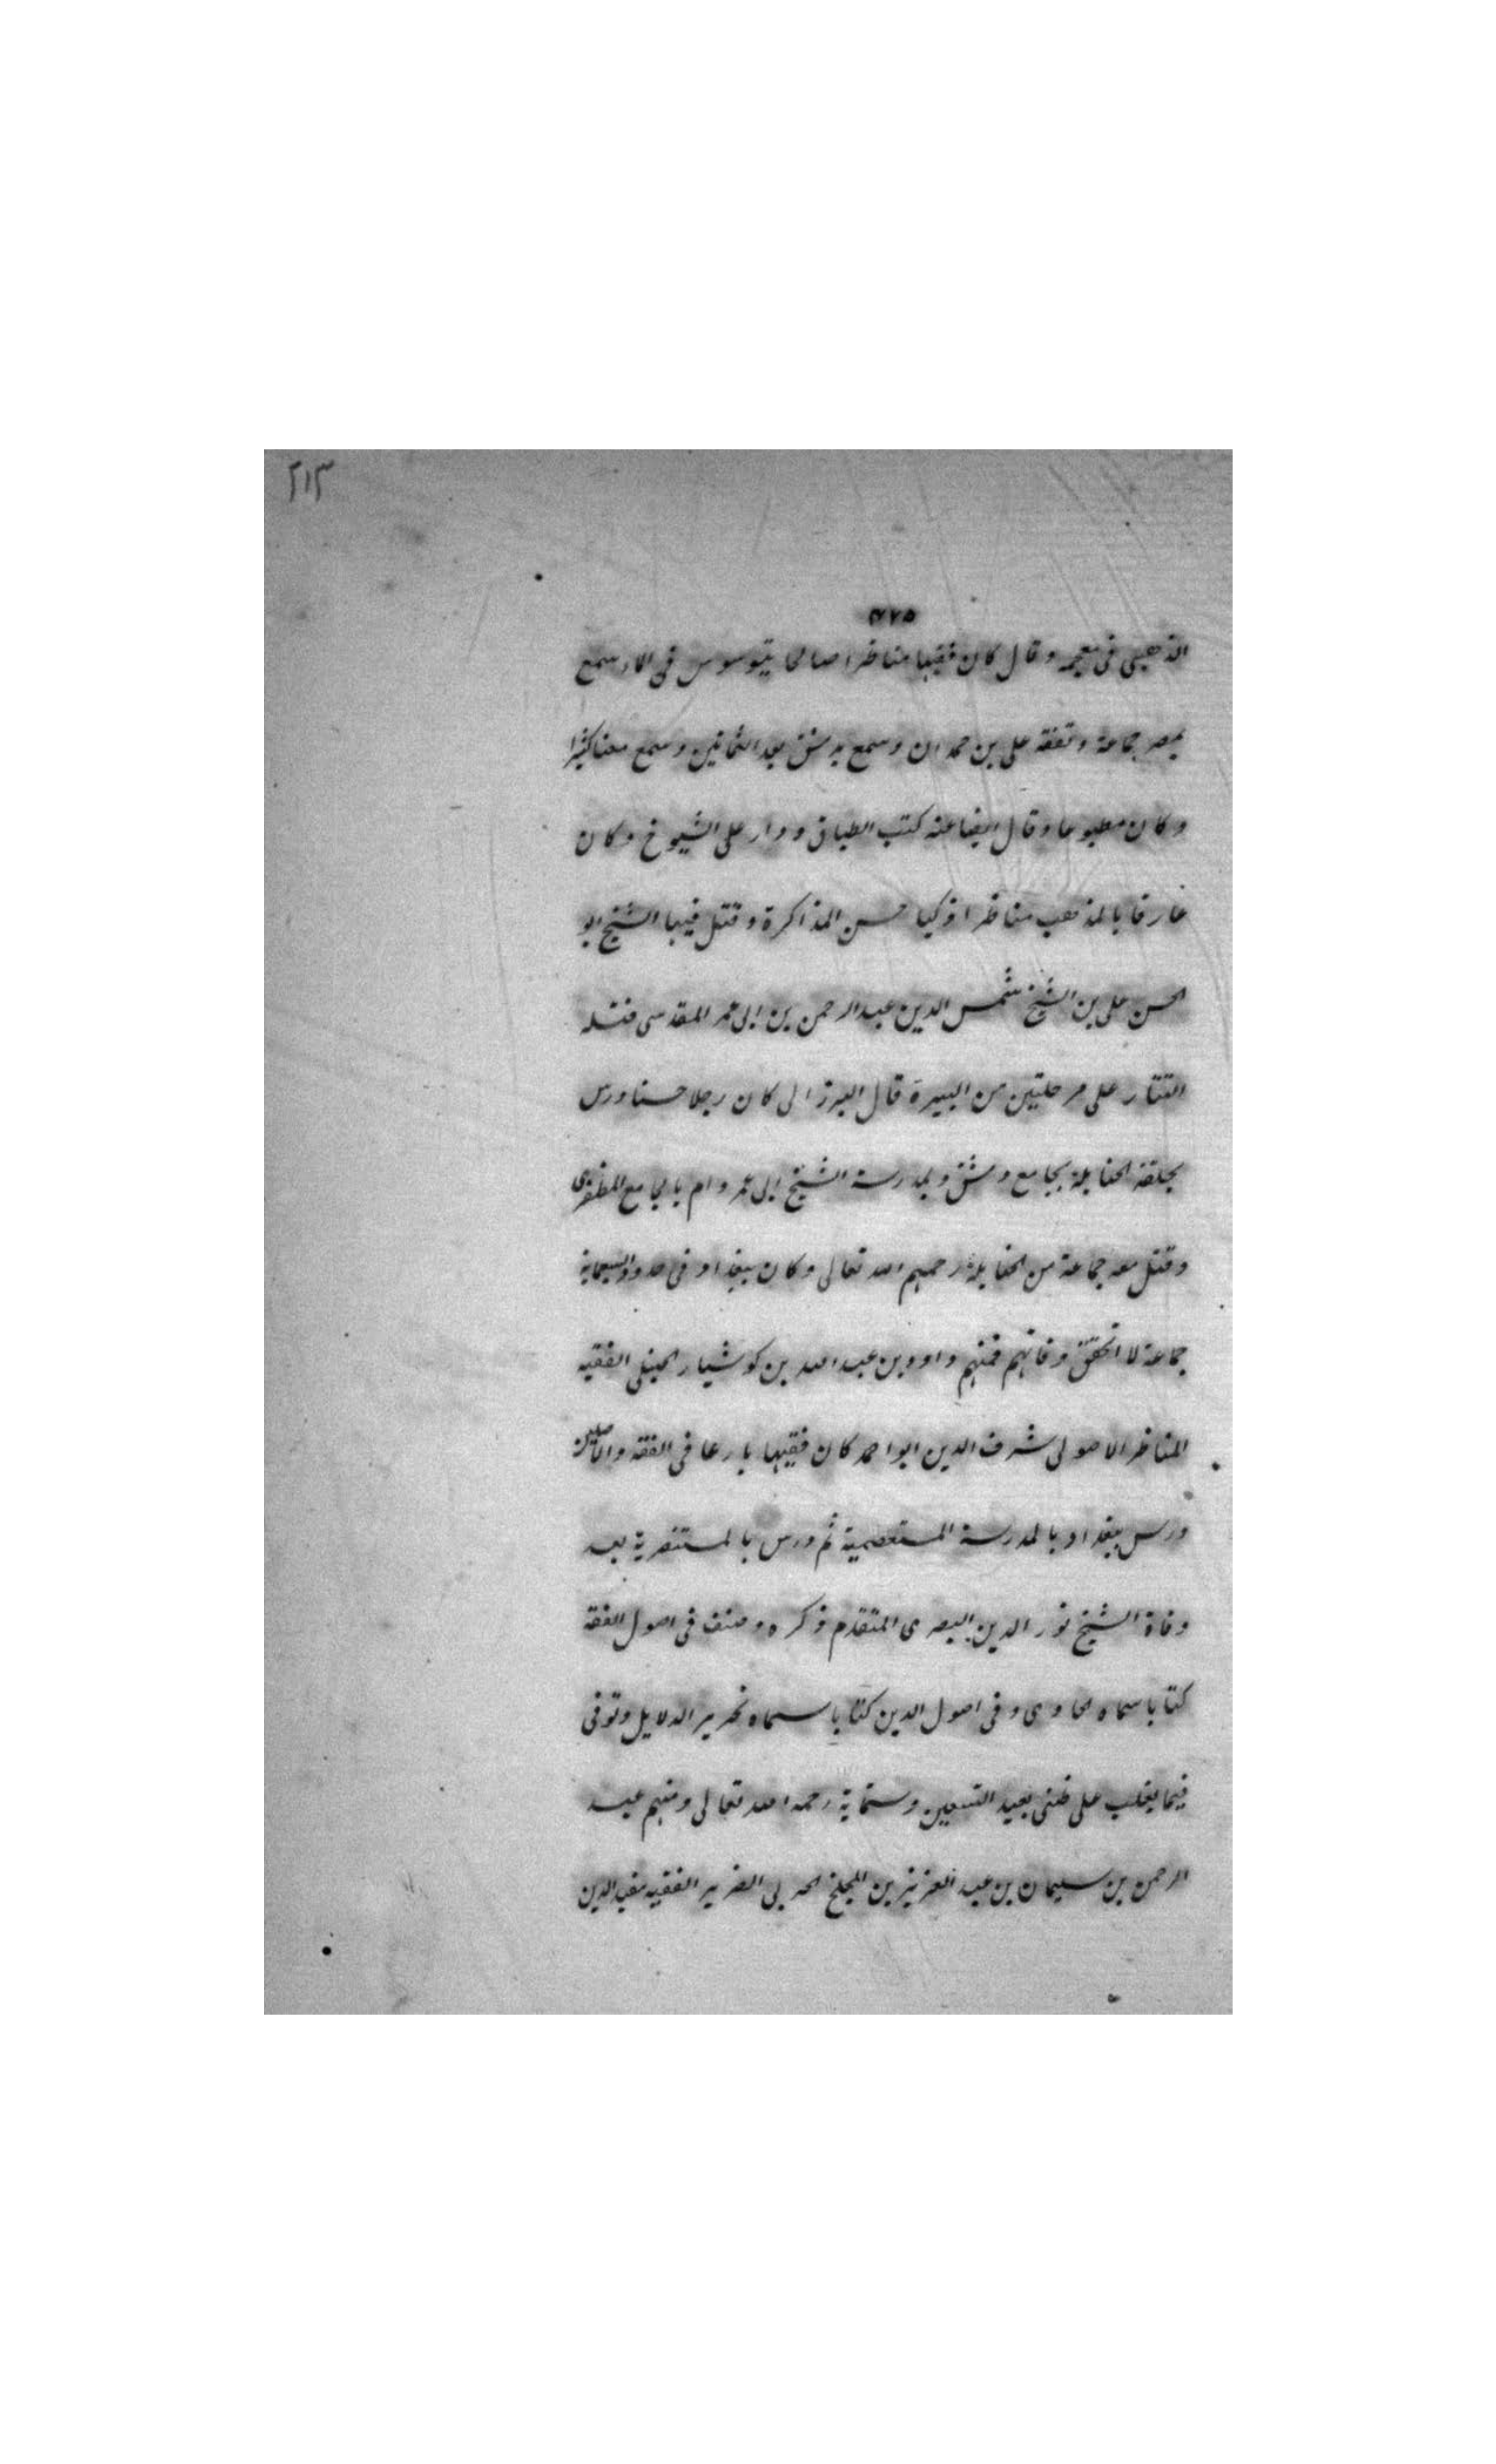 ٢١٣
٤٢٥
الذهبي فى معجمه وقال كان فقيها مناظرا صالحا يتوسوس فى الماء سمع
بمصر جماعة وتفقه على بن حمدان وسمع بدمشق بعد الثمانين وسمع معنا كثيرا
وكان مطبوعا وقال ايضا عنه كتب الطباق ودار على الشيوخ وكان
عارفا بالمذهب مناظرا ذكيا حسن المذاكرة وقتل فيها الشيخ ابو
الحسن على بن الشيخ شمس الدين عبد الرحمن بن ابى عمر المقدسى قتله
التتار على مرحلتين من البيرة قال البرزالى كان رجلا حسنا درس
بحلقة الحنابلة بجامع دمشق وبمدرسة الشيخ ابى عمر وام بالجامع المظفرى
وقتل معه جماعة من الحنابلة رحمهم الله تعالى وكان ببغداد فى حدود السبعماية
جماعة لا اتحقق وفاتهم فمنهم داود بن عبد الله بن كوشيار الحنبلى الفقيه
المناظر الاصولى شرف الدين ابو احمد كان فقيها بارعا فى الفقه والاصلين
درس ببغداد بالمدرسة المستعصمية ثم درس بالمستنصرية بعد
وفاة الشيخ نور الدين البصرى المتقدم ذكره وصنف فى اصول الفقه
كتابا سماه الحاوى وفى اصول الدين كتابا سماه تحرير الدلايل وتوفى
فيما يغلب على ظنى بعيد التسعين وستماية رحمه الله تعالى ومنهم عبد
الرحمن بن سليمان بن عبد العزيز بن المجلخ الحربى الضرير الفقيه مفيد الدين